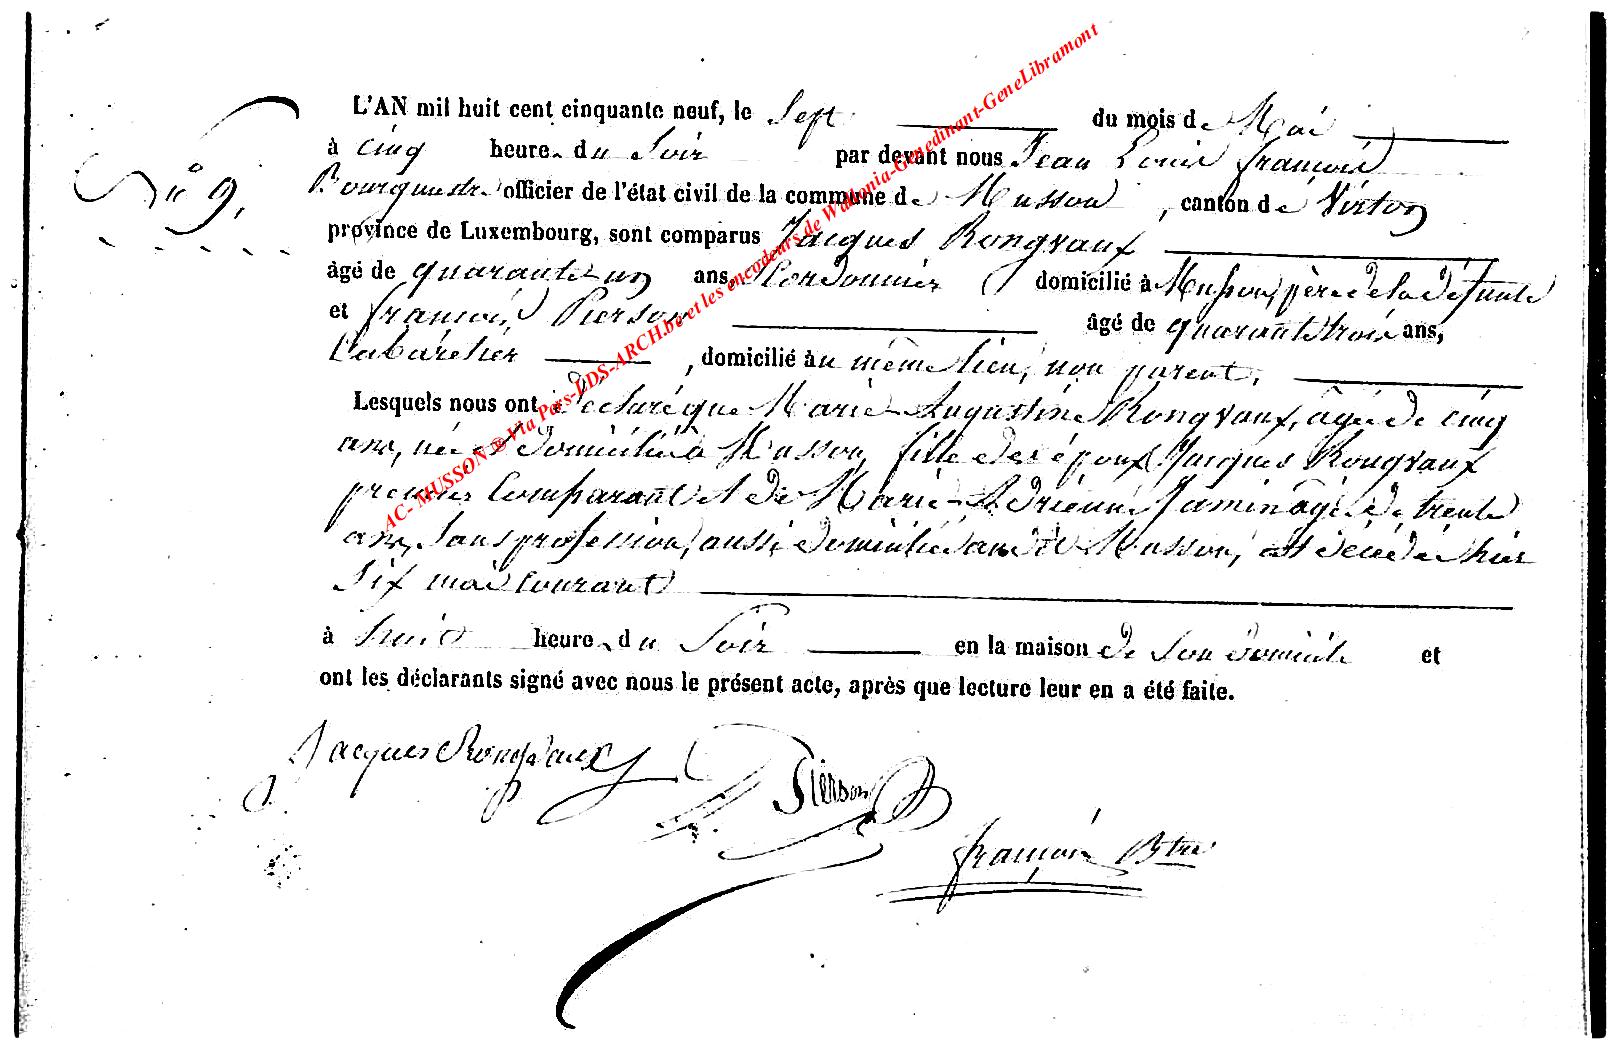 L'AN mil huit cent cinquante neuf, le Sept du mois de Mai
à cinq heures du Soir par devant nous Jean Louis François
N° 9, Bourguestre officier de l'état civil de la commune de Musson, canton de Virton
province de Luxembourg, sont comparus Jacques Rongvaux
âgé de quarante un ans, Cordonnier domicilié à Musson, père de la défunte
et François Pierson âgé de quarante trois ans,
Cabaretier, domicilié au même lieu, non parent,
Lesquels nous ont déclaré que Marie-Augustine Rongvaux, âgée de cinq
ans, née et domiciliée à Musson, fille des époux Jacques Rongvaux
premier Comparant et de Marie-Adrienne Jamin âgée de trente
ans, Sans profession, aussi domiciliée audit Musson, est décédée hier
Six mai Courant
à huit heures du Soir en la maison de Son domicile et
ont les déclarants signé avec nous le présent acte, après que lecture leur en a été faite.
Jacques Rongvaux
Pierson
François Btre
AC- MUSSON ® Via Pers-LDS-ARCH.be et les encodeurs de Wallonia-Genedinant-GeneLibramont